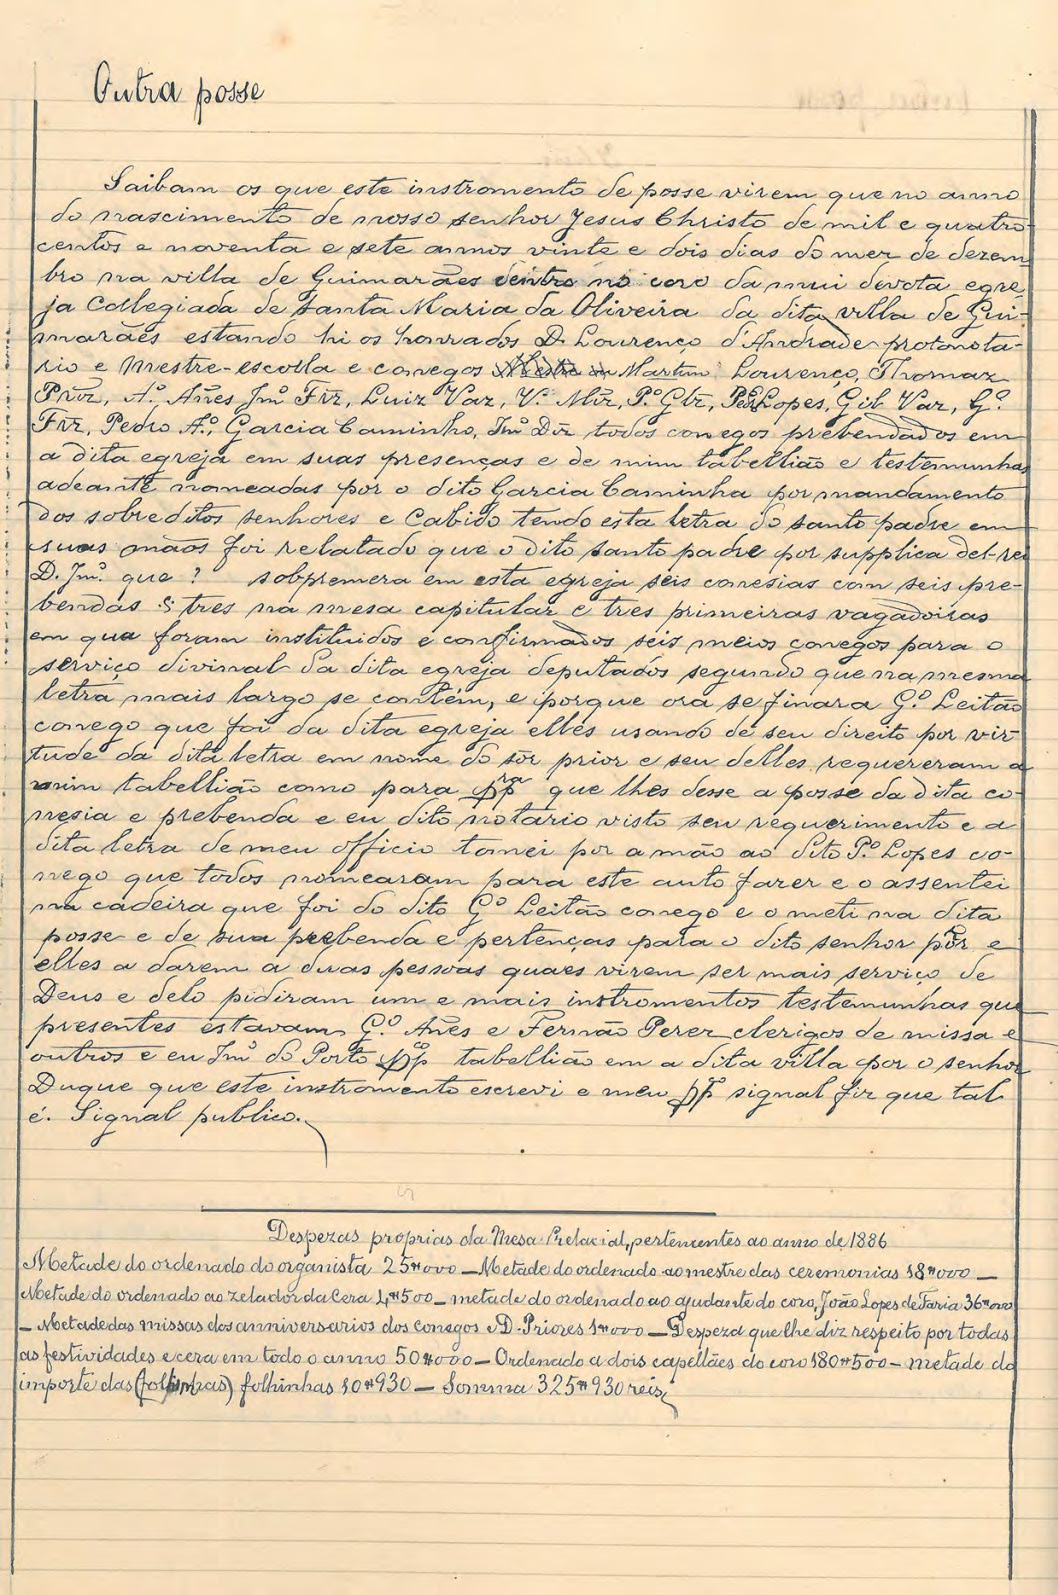 Outra posse
Saibam os que este instromento de posse virem que no anno
do nascimento de nosso senhor Jesus Christo de mil e quatro-
centos e noventa e sete annos vinte e dois dias do mez de dezem
bro na villa de Guimarães dentro no coro da mui devota egre
ja Collegiada de Santa Maria da Oliveira da dita villa de Gui-
marães estando hi os honrados D. Lourenço d'Andrade protonota-
rio e Mestre-escolla e conegos Martim Lourenço, Thomaz
Piz, A.º Añes Jm.º Frz, Luiz Vaz, V.º Miz, P.º Glz, Pedro Lopes, Gil Vaz, G.º
Frz, Pedro A.º, Garcia Caminho, Jm.º Diz todos conegos prebendados em
a dita egreja em suas presenças e de mim tabellião e testemunhas
adeante nomeadas por o dito Garcia Caminha por mandamento
dos sobreditos senhores e Cabido tendo esta letra do santo padre em
suas mãos foi relatado que o dito santo padre por supplica del-rei
D. Jm.º que ? sobpremera em esta egreja seis conesias com seis pre-
bendas s tres na mesa capitular e tres primeiras vagadoiras
em que foram instituidos e confirmados seis meios conegos para o
serviço divinal da dita egreja deputados segundo que na mesma
letra mais largo se contém, e porque ora se finara G.º Leitão
conego que foi da dita egreja elles usando de seu direito por vir-
tude da dita letra em nome do sõr prior e seu delles requereram a
mim tabellião como para pp.ra que lhes desse a posse da dita co-
nesia e prebenda e eu dito notario visto seu requerimento e a
dita letra de meu officio tomei por a mão ao dito P.º Lopes co-
nego que todos nomearam para este auto fazer e o assentei
na cadeira que foi do dito G.º Leitão conego e o meti na dita
posse e de sua prebenda e pertenças para o dito senhor põr e
elles a darem a duas pessoas quaes virem ser mais serviço de
Deus e delo pidiram um e mais instromentos testemunhas que
presentes estavam G.º Añes e Fernão Perez clerigos de missa e
outros e eu Jm.º do Porto pp.co tabellião em a dita villa por o senhor
Duque que este instromento escrevi e meu pp.co signal fiz que tal
é. Signal publico.
Despezas proprias da Mesa Prelacial, pertencentes ao anno de 1886
Metade do ordenado do organista 25#000 — Metade do ordenado ao mestre das ceremonias 18#000 —
Metade do ordenado ao zelador da Cera 4#500 — metade do ordenado ao ajudante do coro, João Lopes de Faria 36#000
— Metade das missas dos anniversarios dos conegos e D. Priores 1#000 — Despeza que lhe diz respeito por todas
as festividades e cera em todo o anno 50#000 — Ordenado a dois capellães do coro 180#500 — metade do
importe das (folhinhas) folhinhas 10#930 — Somma 325#930 reis